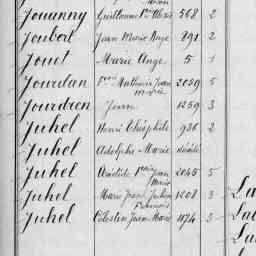 Jouanny Guillaume Pre Alexis 368 2
Joubert Jean Marie Ange 891 2
Jouet Marie Ange 5 1
Jourdan Fcois Mathurin Jean Marie 2059 5
Jourdren Jean 1259 3
Juhel Henri Théophile 936 2
Juhel Adolphe Marie
Juhel Aimable Jean Marie 2045 5
Juhel Marie Joseph Julien François 1208 3
Juhel Célestin Jean Marie 1174 3